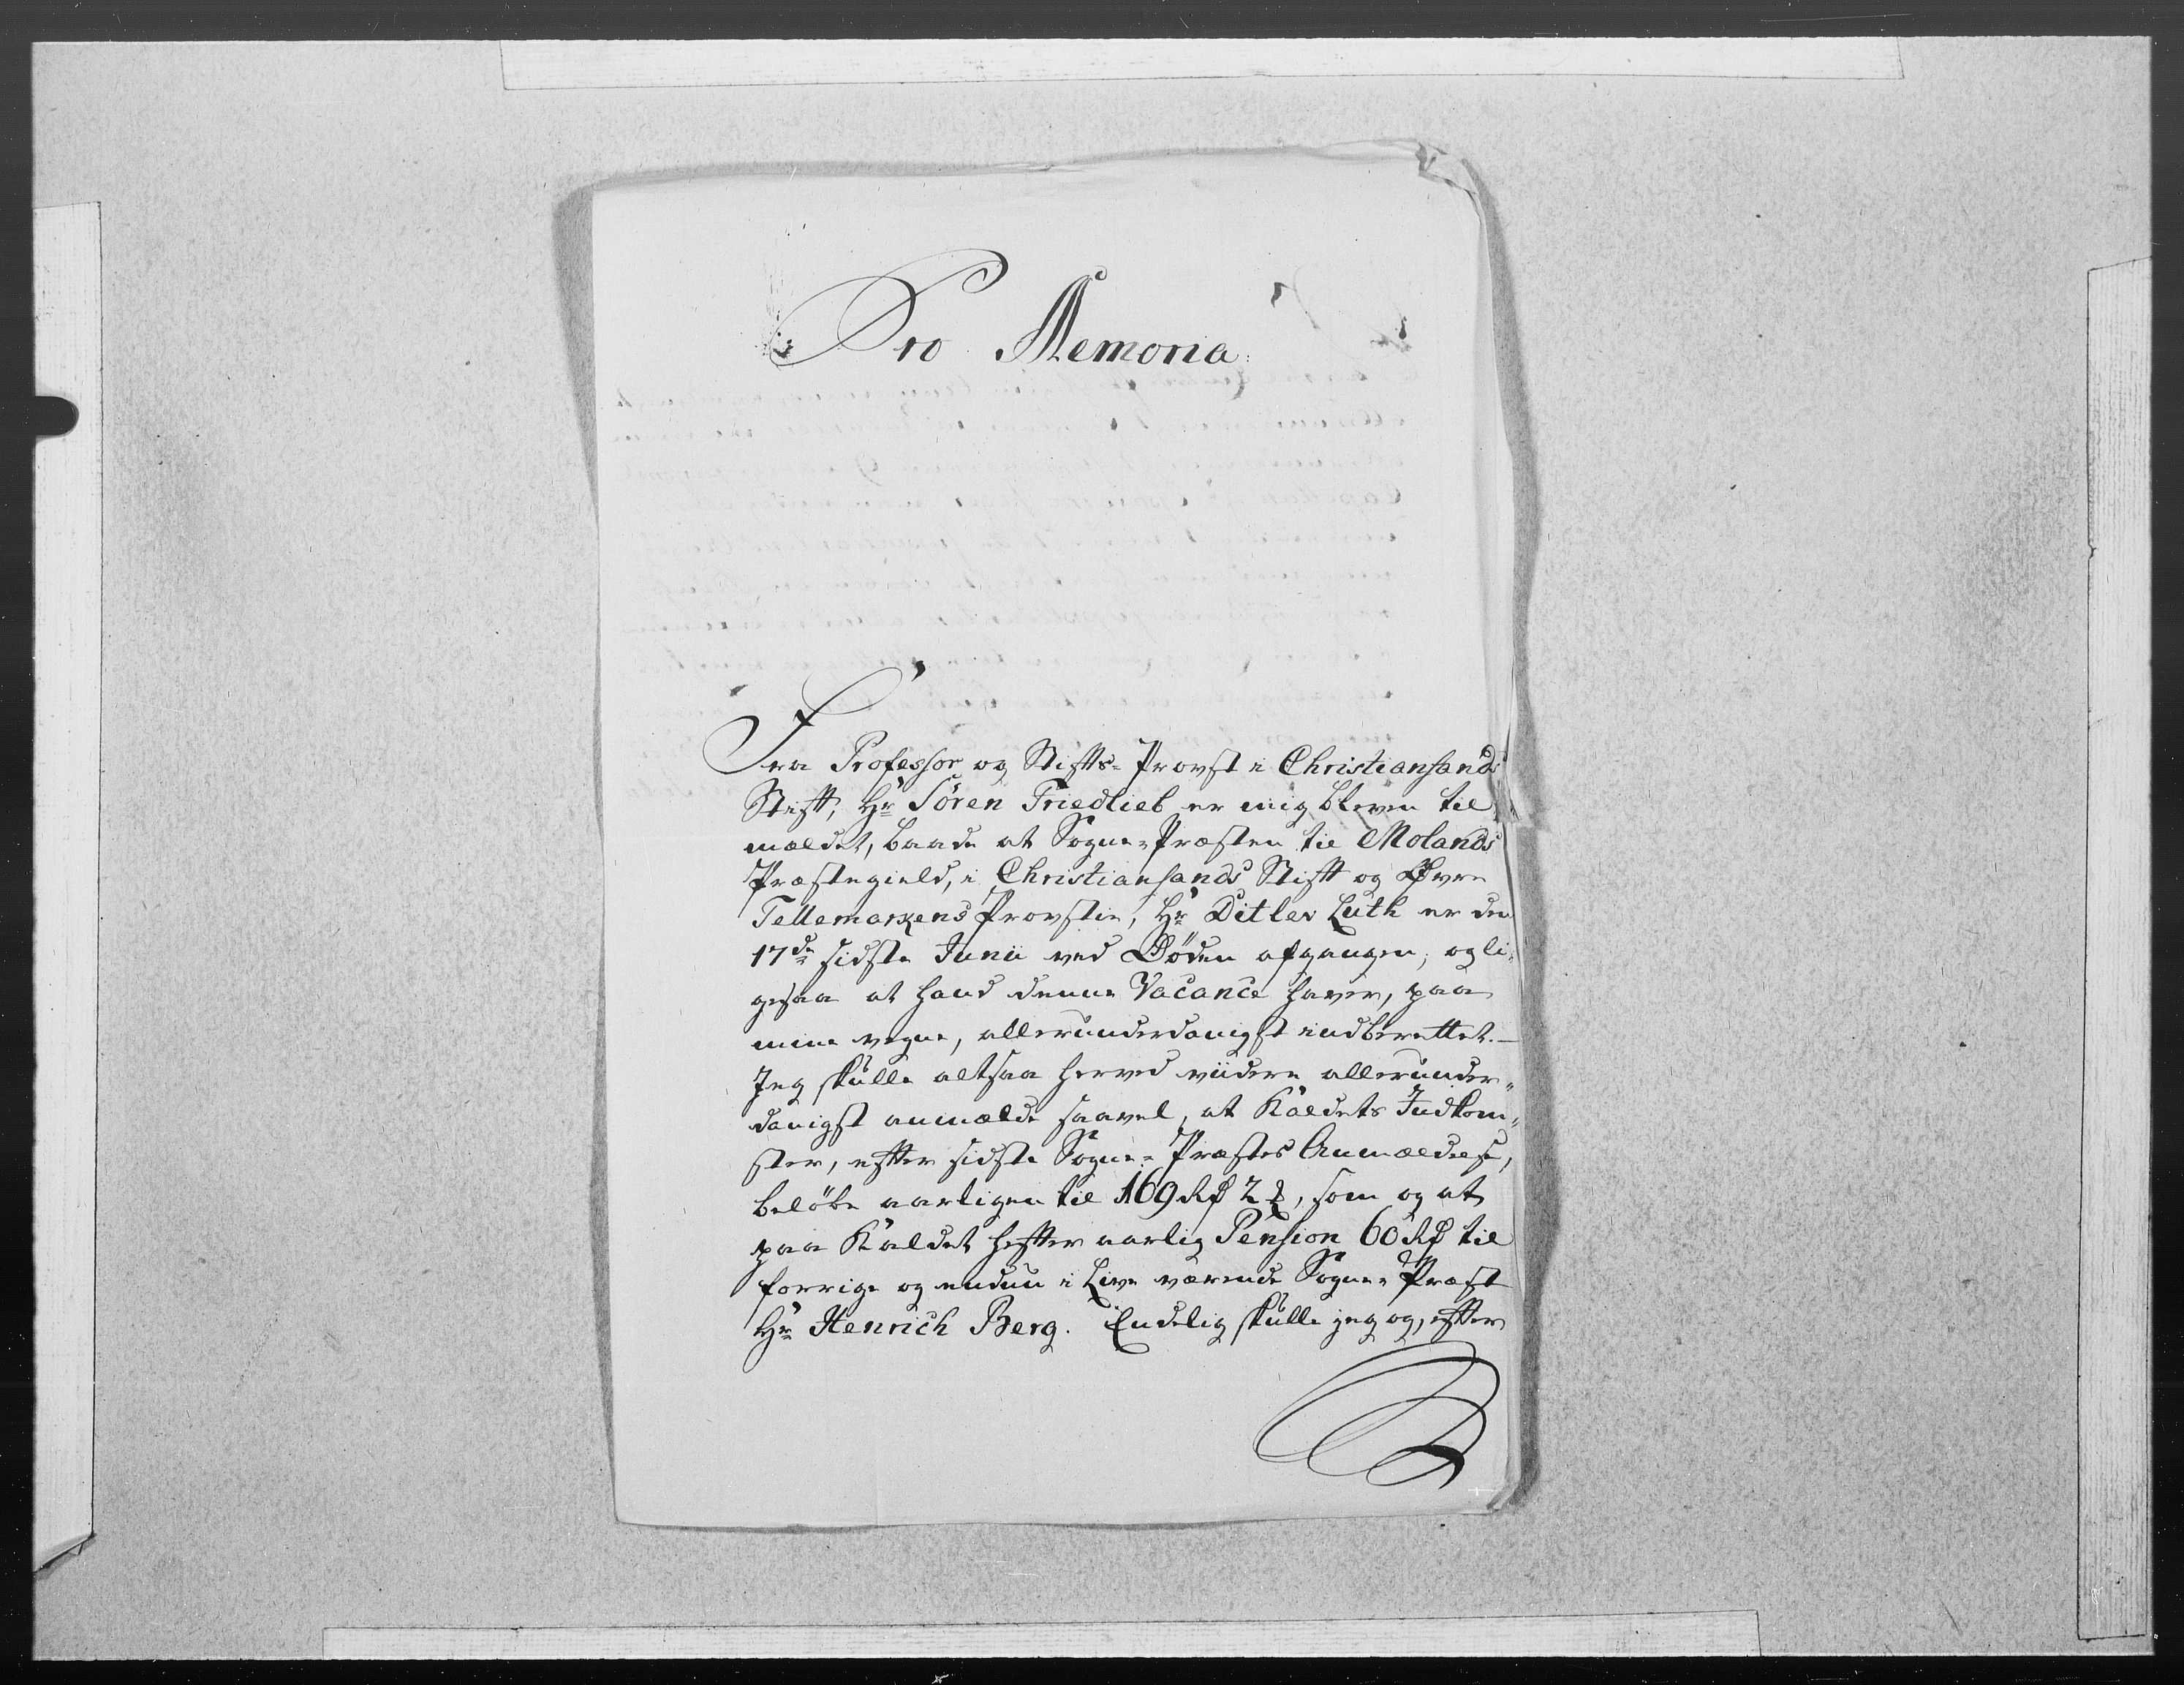 Pro Memoria
Fra Professor og Stifts-Provst i Christiansands
Stift, Hr Sören Friedlieb er mig bleven til
meldet, baade at Sogne-Præsten til Molands
Præstegield, i Christiansands Stift og Øvre
Tellemarkens Provstie, Hr Ditlev Luth er den
17de sidste Junii ved Döden afgangen, og li-
gesaa at hand denne Vacance haver, paa
mine vegne, allerunderdanigst indberettet.
Jeg skulle altsaa herved viidere allerunder-
danigst anmælde saavel, at Kaldets Indkom-
ster, efter sidste Sogne-Præstes Anmældelse,
belöbe aarligen til 169 Rd 2 ß, som og at
paa Kaldet hefter aarlig Pension 60 Rd til
forrige og endnu i Live værende Sogne-Præst
Hr Henrich Berg. Endelig skulle jeg og, efter